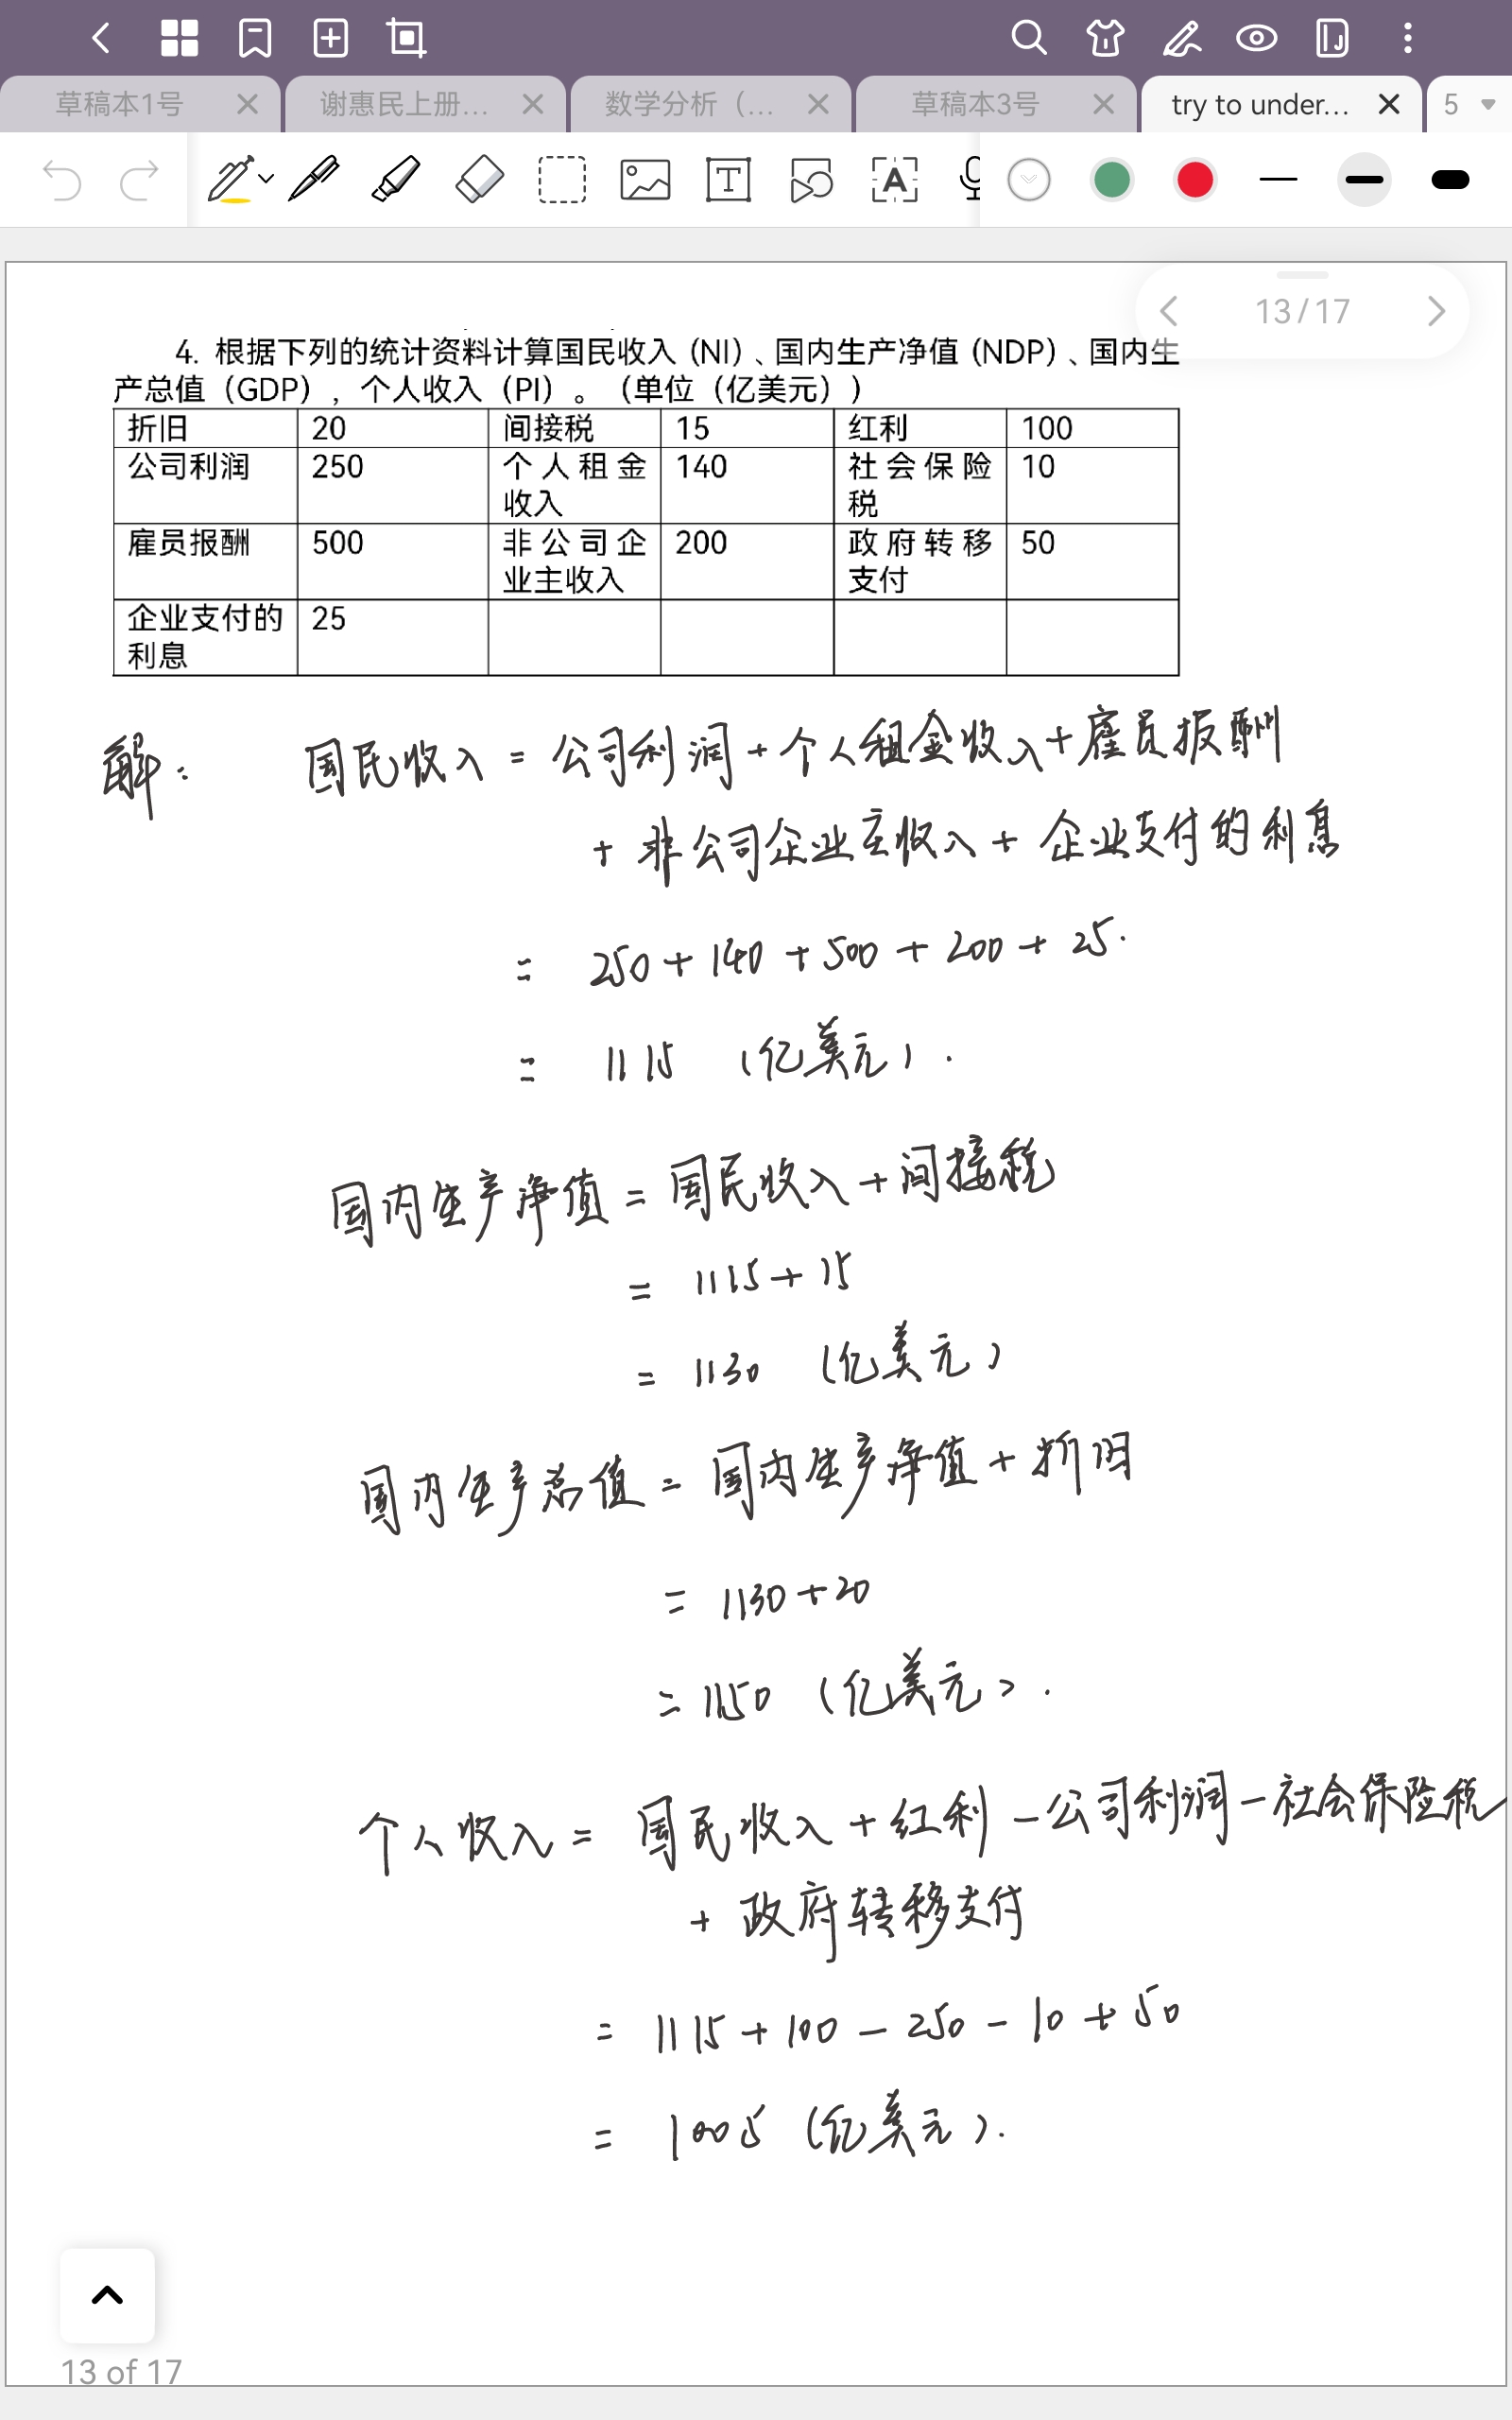 草稿本1号
谢惠民上册...
数学分析（...
草稿本3号
try to under...
5
13/17
4. 根据下列的统计资料计算国民收入（NI）、国内生产净值（NDP）、国内生
产总值（GDP），个人收入（PI）。（单位（亿美元））
折旧 20 间接税 15 红利 100
公司利润 250 个人租金收入 140 社会保险税 10
雇员报酬 500 非公司企业主收入 200 政府转移支付 50
企业支付的利息 25
解: 国民收入 = 公司利润 + 个人租金收入 + 雇员报酬
+ 非公司企业主收入 + 企业支付的利息
= 250 + 140 + 500 + 200 + 25.
= 1115 (亿美元).
国内生产净值 = 国民收入 + 间接税
= 1115 + 15
= 1130 (亿美元)
国内生产总值 = 国内生产净值 + 折旧
= 1130 + 20
= 1150 (亿美元).
个人收入 = 国民收入 + 红利 - 公司利润 - 社会保险税
+ 政府转移支付
= 1115 + 100 - 250 - 10 + 50
= 1005 (亿美元).
13 of 17